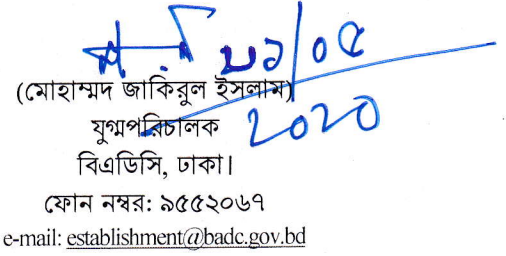 (মোহাম্মদ জাকিরুল ইসলাম)
যুগ্মপরিচালক
বিএডিসি, ঢাকা।
ফোন নম্বর: ৯৫৫২০৬৭
e-mail: establishment@badc.gov.bd